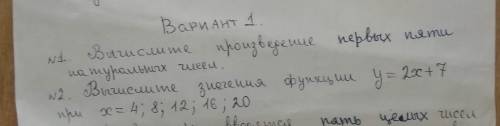 Вариант 1.
№1. Вычислите произведение первых пяти
натуральных чисел.
№2. Вычислите значения функции y = 2x+7
при x = 4; 8; 12; 16; 20
пять целых чисел